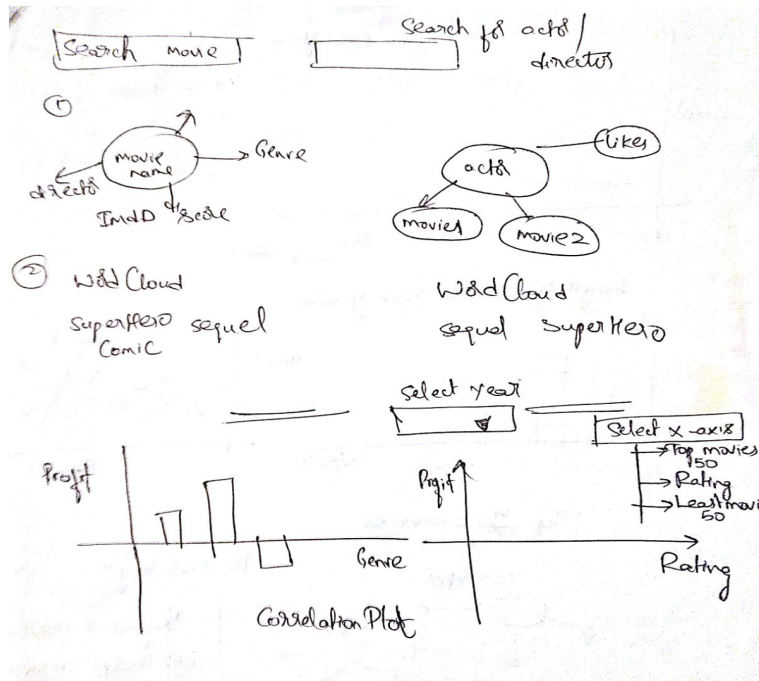 Search movie
Search for actor/
director
①
movie
name
Genre
director
ImdD score
actor
likes
movie1
movie2
② Word Cloud
SuperHero sequel
Comic
Word Cloud
sequel SuperHero
Select year
Select x-axis
Top movies
50
Rating
Least movi
50
Profit
Genre
Profit
Rating
Correlation Plot